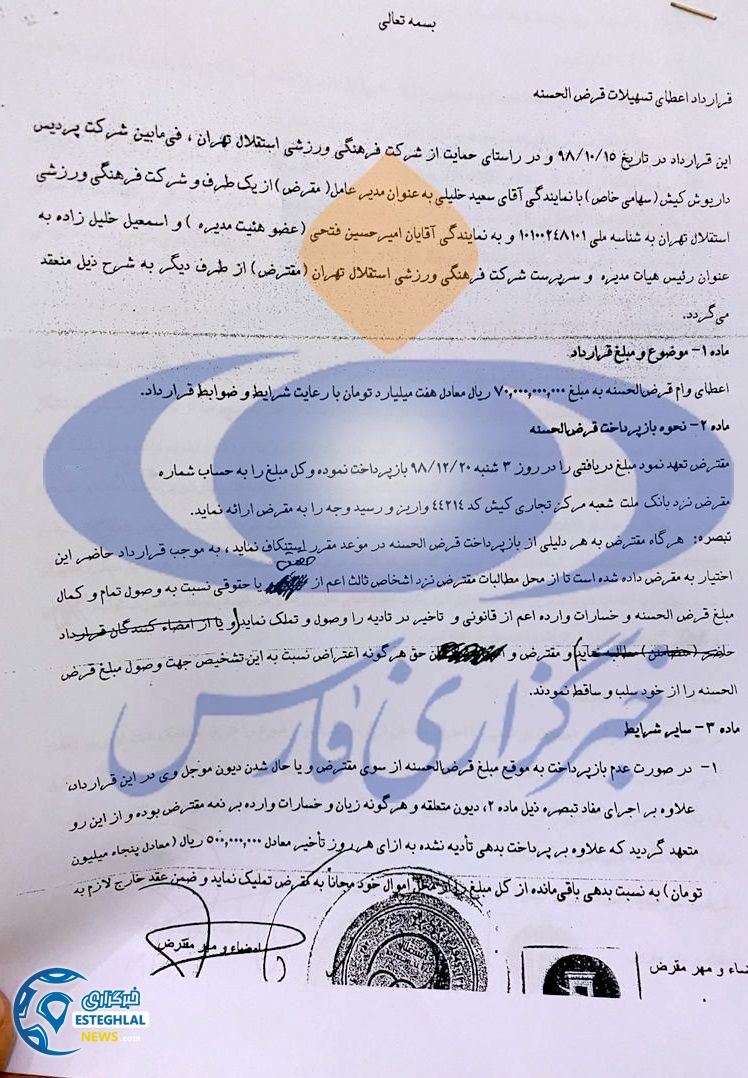 بسمه تعالی
قرارداد اعطای تسهیلات قرض الحسنه
این قرارداد در تاریخ ۹۸/۱۰/۱۵ و در راستای حمایت از شرکت فرهنگی ورزشی استقلال تهران ، فی‌مابین شرکت پردیس
داریوش کیش (سهامی خاص) با نمایندگی آقای سعید خلیلی به عنوان مدیر عامل( مقرض) از یک طرف و شرکت فرهنگی ورزشی
استقلال تهران به شناسه ملی ۱۰۱۰۰۲۴۸۱۰۱ و به نمایندگی آقایان امیرحسین فتحی (عضو هئیت مدیره ) و اسمعیل خلیل زاده به
عنوان رئیس هیات مدیره و سرپرست شرکت فرهنگی ورزشی استقلال تهران (مقترض) از طرف دیگر به شرح ذیل منعقد
می‌گردد.
ماده ۱- موضوع و مبلغ قرارداد
اعطای وام قرض‌الحسنه به مبلغ ۷۰,۰۰۰,۰۰۰,۰۰۰ ریال معادل هفت میلیارد تومان با رعایت شرایط و ضوابط قرارداد.
ماده ۲- نحوه بازپرداخت قرض‌الحسنه
مقترض تعهد نمود مبلغ دریافتی را در روز ۳ شنبه ۹۸/۱۲/۲۰ بازپرداخت نموده و کل مبلغ را به حساب شماره
مقرض نزد بانک ملت شعبه مرکز تجاری کیش کد ۴۴۲۱۴ واریز و رسید وجه را به مقرض ارائه نماید.
تبصره: هرگاه مقترض به هر دلیلی از بازپرداخت قرض الحسنه در موعد مقرر استنکاف نماید ، به موجب قرارداد حاضر این
اختیار به مقرض داده شده است تا از محل مطالبات مقترض نزد اشخاص ثالث اعم از یا حقوقی نسبت به وصول تمام و کمال
مبلغ قرض الحسنه و خسارات وارده اعم از قانونی و تاخیر در تادیه را وصول و تملک نماید(و یا از امضاء کنندگان قرارداد
حاضر (متضامنن) مطالبه نماید) و مقترض و حق هرگونه اعتراض نسبت به این تشخیص جهت وصول مبلغ قرض
الحسنه را از خود سلب و ساقط نمودند.
ماده ۳- سایر شرایط
۱- در صورت عدم بازپرداخت به موقع مبلغ قرض‌الحسنه از سوی مقترض و یا حال شدن دیون موجل وی در این قرارداد،
علاوه بر اجرای مفاد تبصره ذیل ماده ۲، دیون متعلقه و هرگونه زیان و خسارات وارده بر ذمه مقترض بوده و از این رو
متعهد گردید که علاوه بر پرداخت بدهی تأدیه نشده به ازای هر روز تأخیر معادل ۵۰۰,۰۰۰,۰۰۰ ریال (معادل پنجاه میلیون
تومان) به نسبت بدهی باقی‌مانده از کل مبلغ را از محل اموال خود مجاناً به مقرض تملیک نماید و ضمن عقد خارج لازم به
امضاء و مهر مقترض
امضاء و مهر مقرض
خبرگزاری فارس
خبرگزاری
ESTEGHLAL
NEWS.com